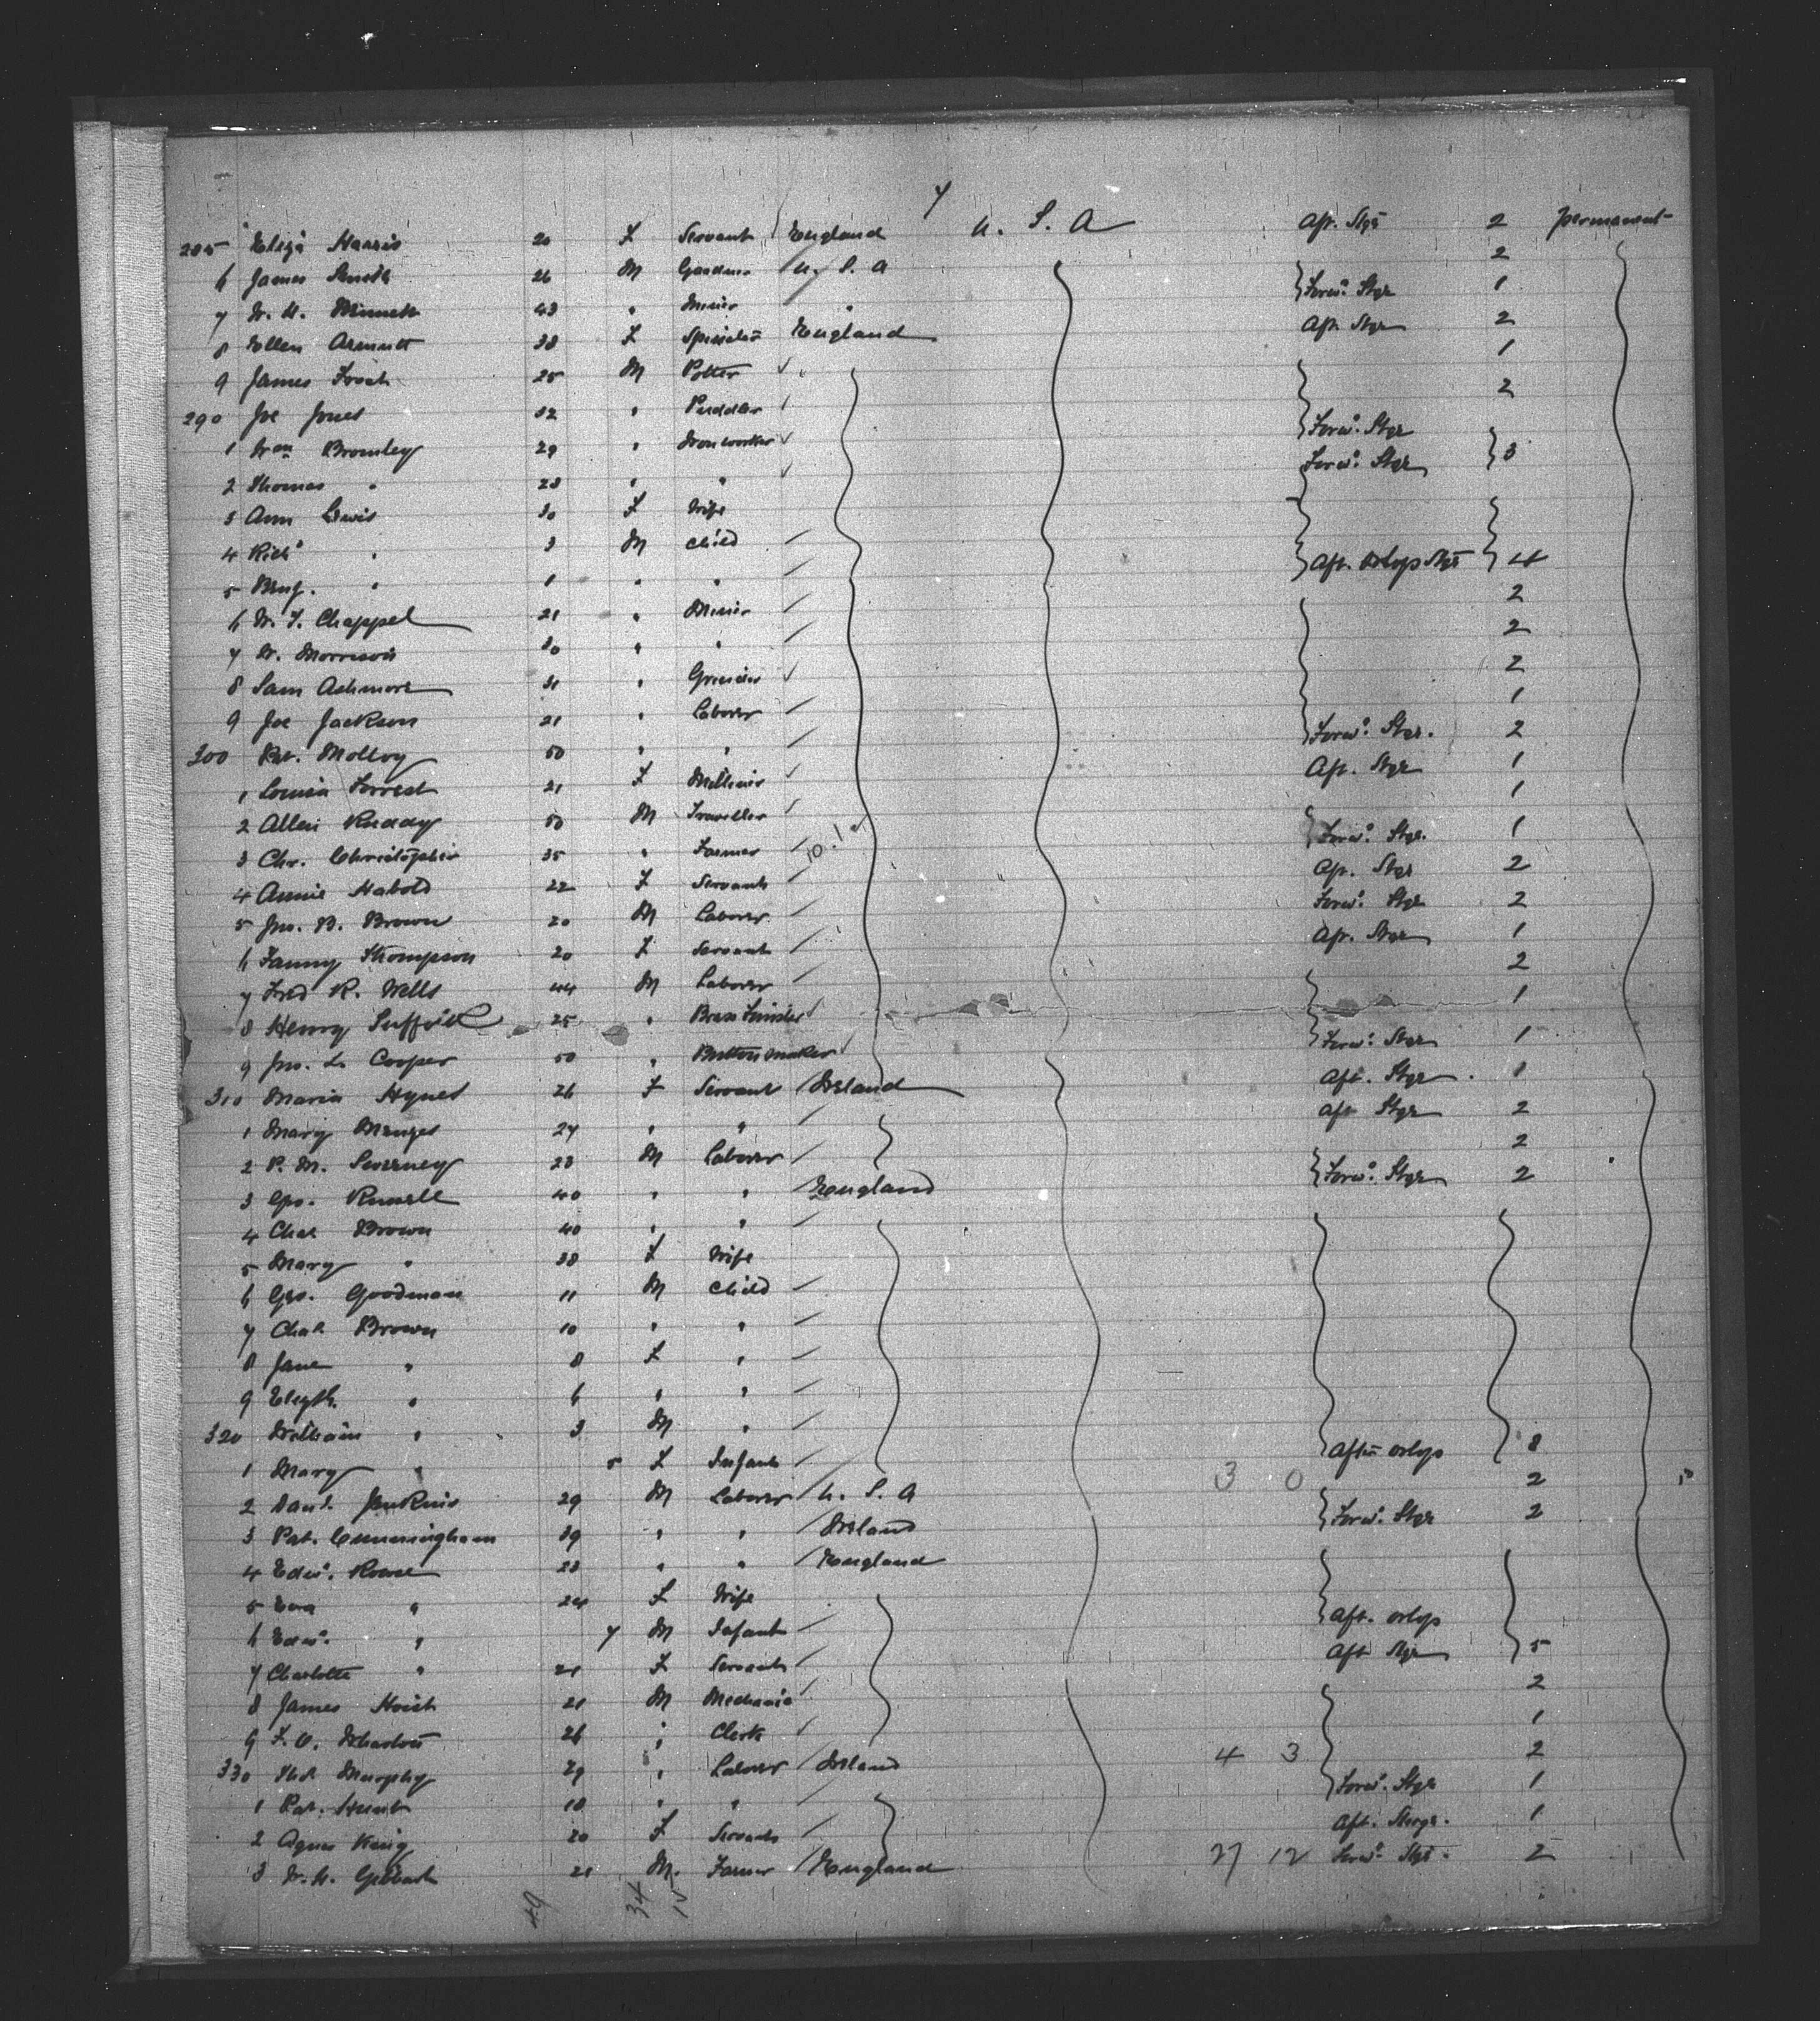 4
285 Eliza Harris 20 F Servant England U. S. A Aft. Stge 2 permanent
6 James Smith 26 M Gardner U. S. A 2
7 W. H. 43 " Miner " Forwd. Stge 1
8 Ellen 38 F Spinster England Aft Stge 2
9 James 25 M Potter 1
290 Joe Jones 32 " Puddler 2
1 Wm Bromley 29 " Ironworker Forwd. Stge
2 Thomas " 23 " " Forwd. Stge 3
3 Ann Lewis 30 F Wife
4 Richd " 3 M Child
5 Benj. " 1 " " Aft. Orlop Stge 4
6 W. T. Chappel 21 " Miner 2
7 W. Morrison 30 " " 2
8 Sam Ashmore 31 " Grinder 2
9 Joe Jackson 21 " Laborer 1
300 Pat. Molloy 50 " " Forwd. Stge. 2
1 Louisa Forrest 21 F Milliner Aft. Stge 1
2 Allen Ruddy 50 M Traveller 1
3 Chr. Christopher 35 " Farmer 10.! Forwd. Stge. 1
4 Annie Habold 22 F Servant Aft. Stge 2
5 Jno. B. Brown 20 M Laborer Forwd. Stge 2
6 Fanny Thompson 20 F Servant Aft. Stge 1
7 Fred R. Wells 44 M Laborer 2
8 Henry Suffolk 25 " Brass Finisher 1
9 Jno. L. Cooper 50 " Button maker Forwd. Stge 1
310 Maria Hynes 26 F Servant Ireland Aft. Stge 1
1 Mary Menzes 24 " " Aft Stge 2
2 P. M. Sweeney 23 M Laborer 2
3 Geo. Russell 40 " " England Forwd. Stge 2
4 Chas Brown 40 " "
5 Mary " 38 F Wife
6 Geo. Goodman 11 M Child
7 Chas. Brown 10 " "
8 Jane " 8 F "
9 Elizth. " 6 " "
320 William " 3 M "
1 Mary " 5 F Infant After orlop 8
2 Danl. Jenkins 29 M Laborer U. S. A 3 0 2
3 Pat. Cunningham 39 " " Ireland Forwd. Stge 2
4 Edwd. Rowse 23 " " England
5 Eva " 24 F Wife
6 Edwd. " 7 M Infant Aft. orlop
7 Charlotte " 21 F Servant Aft Stge 5
8 James 21 M Mechanic 2
9 F. O. Wharton 26 " Clerk 1
330 Thos Murphy 29 " Laborer Ireland 4 3 2
1 Pat. Hunt 18 " " Forwd. Stge 1
2 Agnes King 20 F Servant Aft. Sterge. 1
3 W. H. 21 M. Farmer England 27 12 Forwd. Stge. 2
49 34 15